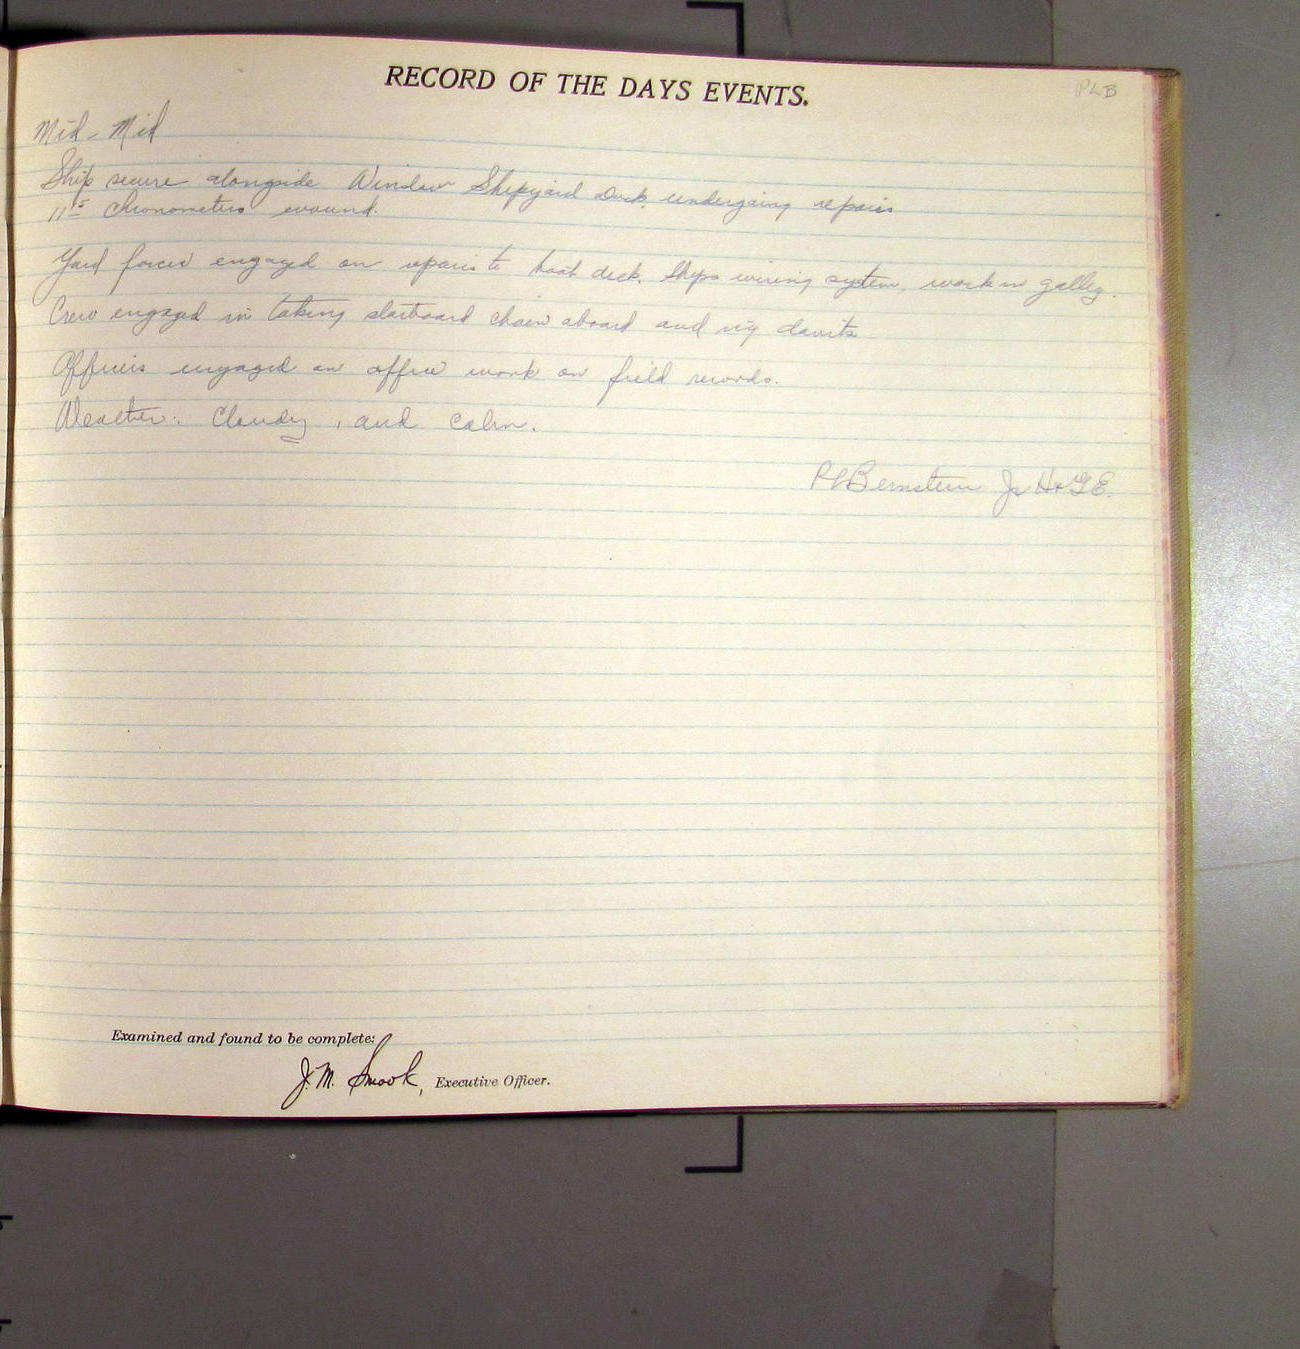 RECORD OF THE DAYS EVENTS.
PLB
Mid - Mid
Ship secure alongside Winslow Shipyard Dock, undergoing repairs
11 15 Chronometers wound.
Yard forces engaged on repairs to boat deck, Ships wiring system, work in galley.
Crew engaged in taking starboard chain aboard and rig davits
Officers engaged in office work on field records.
Weather: Cloudy, and calm.
PLBernstein Jr H+GE.
Examined and found to be complete:
J.M. Smook, Executive Officer.